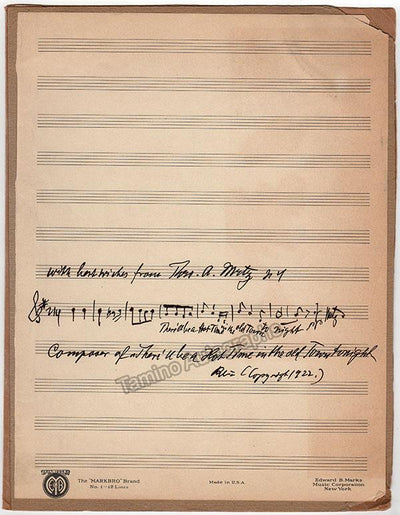 with best wishes from Theo. A. Metz N Y
There'll be a Hot Time in the old Town to night
Composer of a There'll be a Hot Time in the old Town tonight
(Copyright 1922.)
Tamino Autographs
The "MARKBRO" Brand
No. 1-12 Lines
Made in U.S.A.
Edward B. Marks
Music Corporation
New York